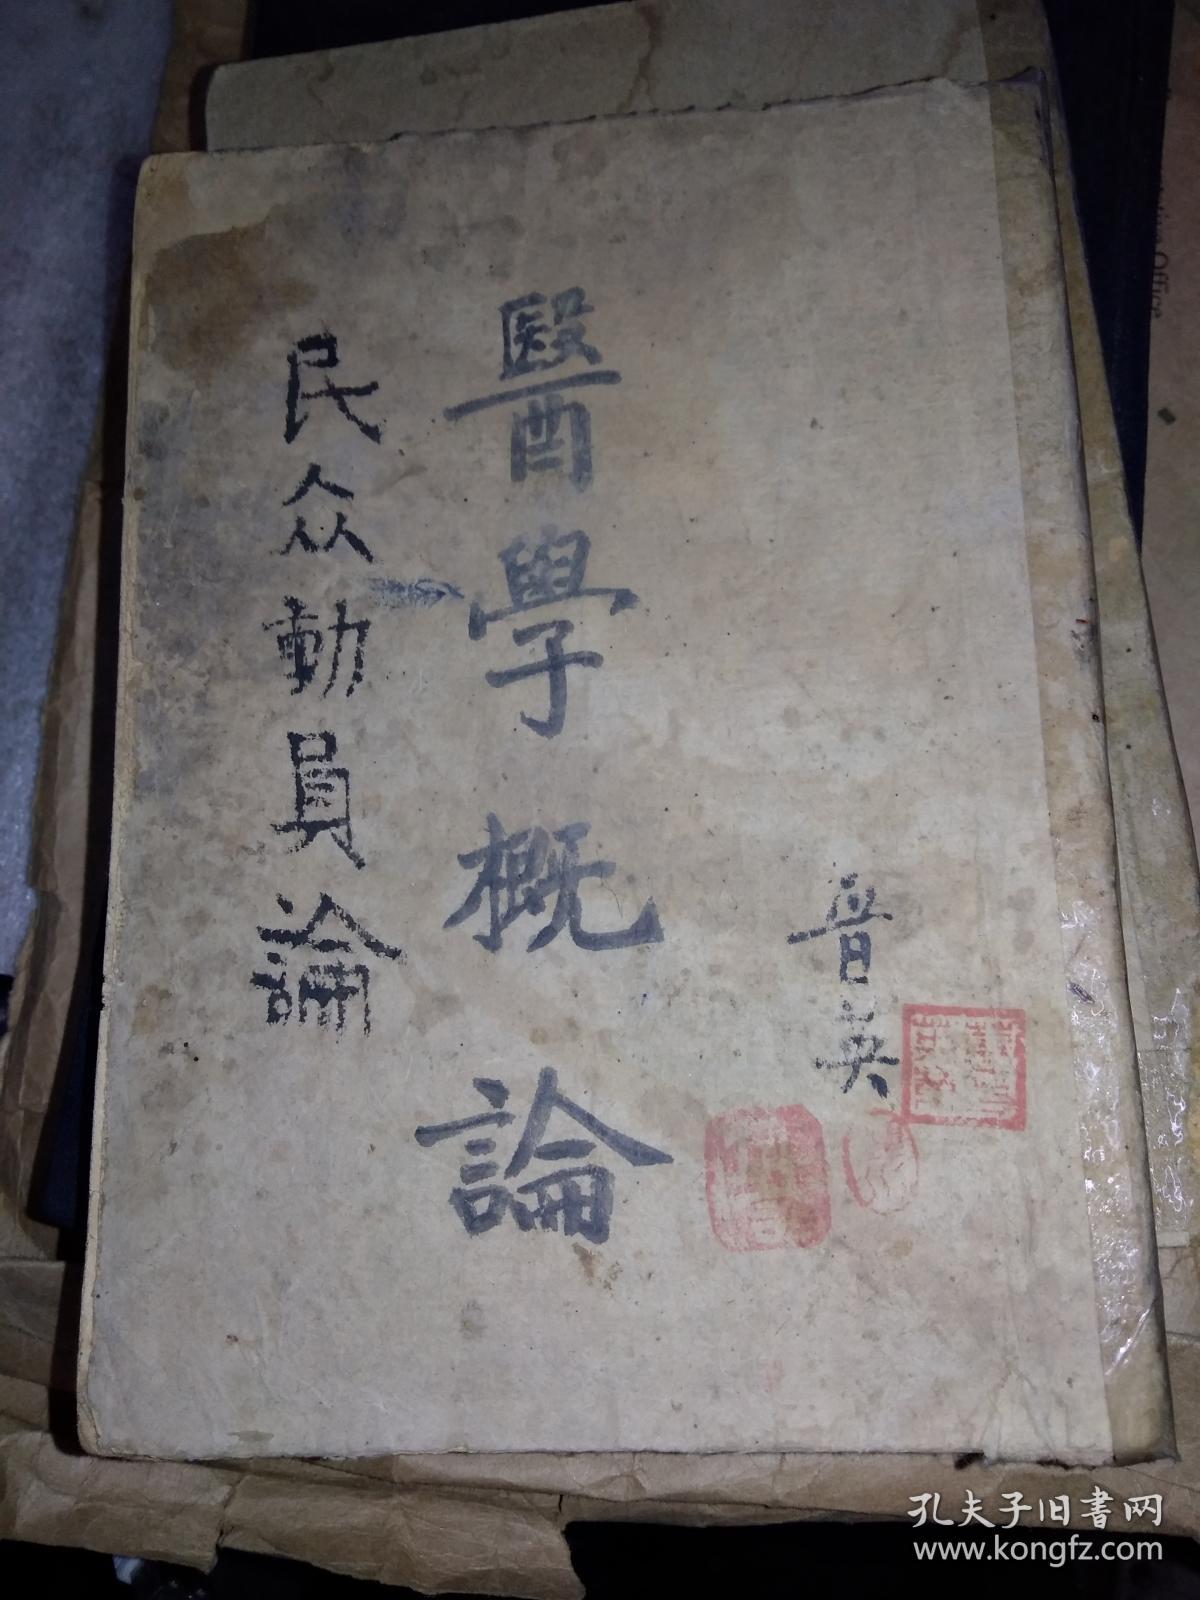 晋英
醫學概論
民众動員論
Office
孔夫子旧書网
www.kongfz.com